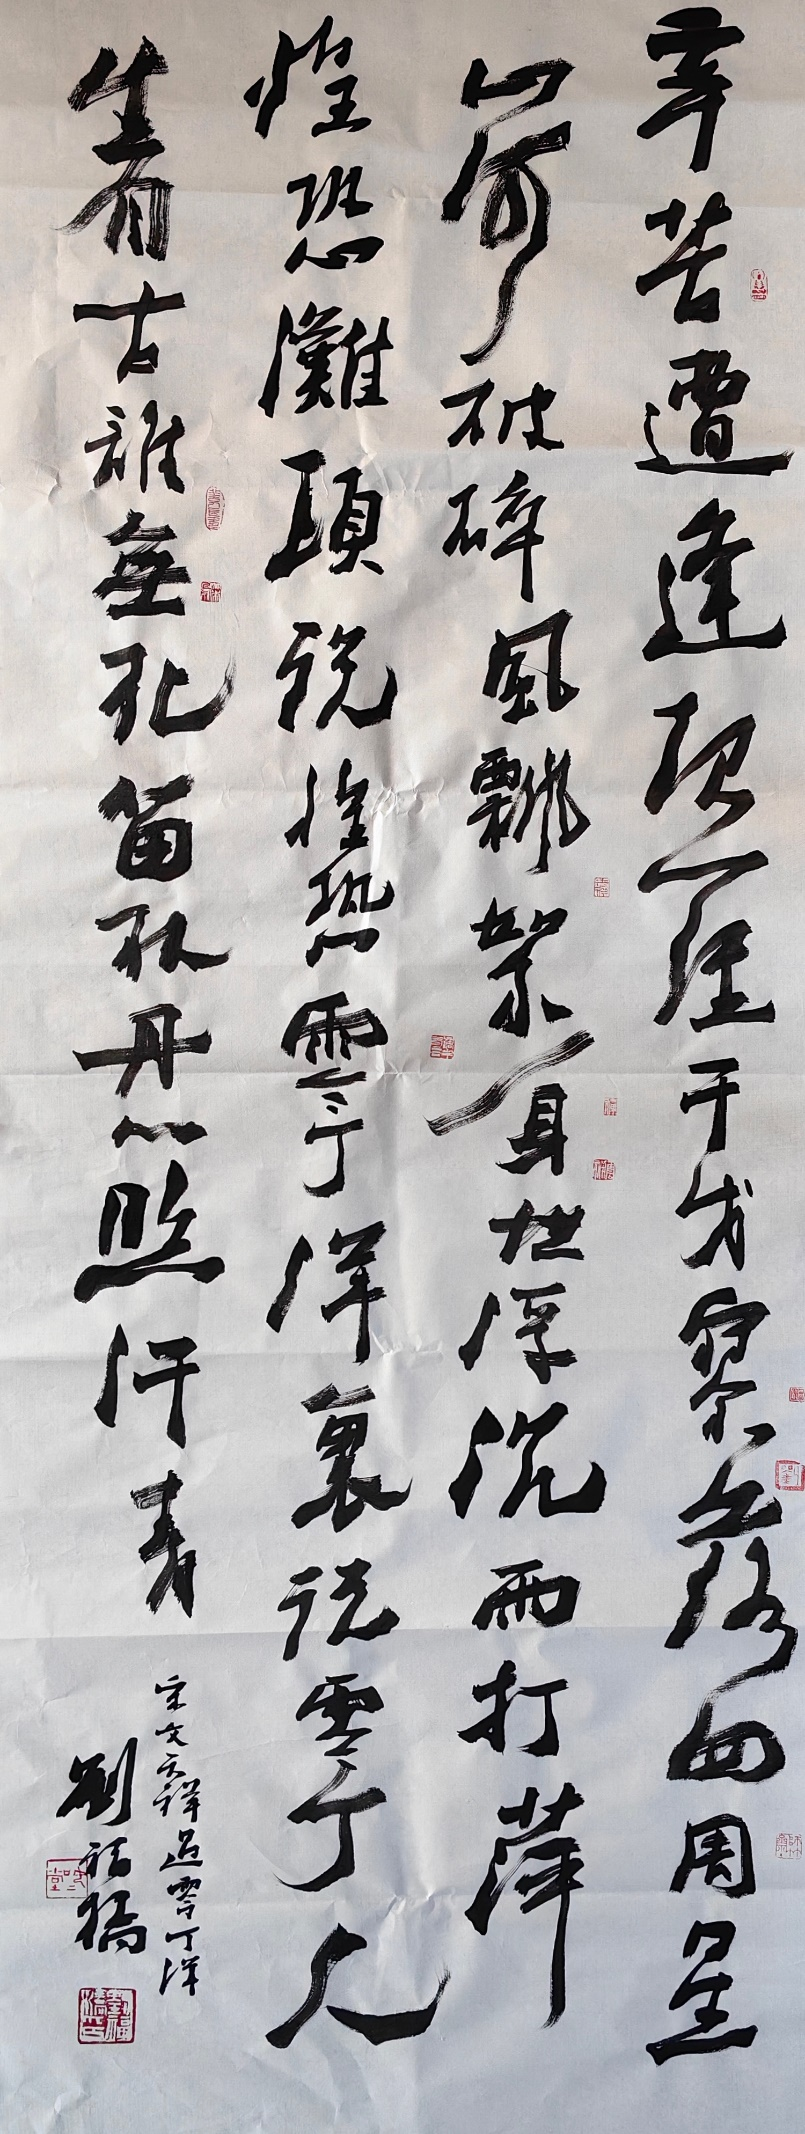 辛苦遭逢起一經干戈寥落四周星
山河破碎風飄絮身世浮沉雨打萍
惶恐灘頭說惶恐零丁洋裏說零丁人
生自古誰無死留取丹心照汗青
宋文天祥過零丁洋
劉福橋